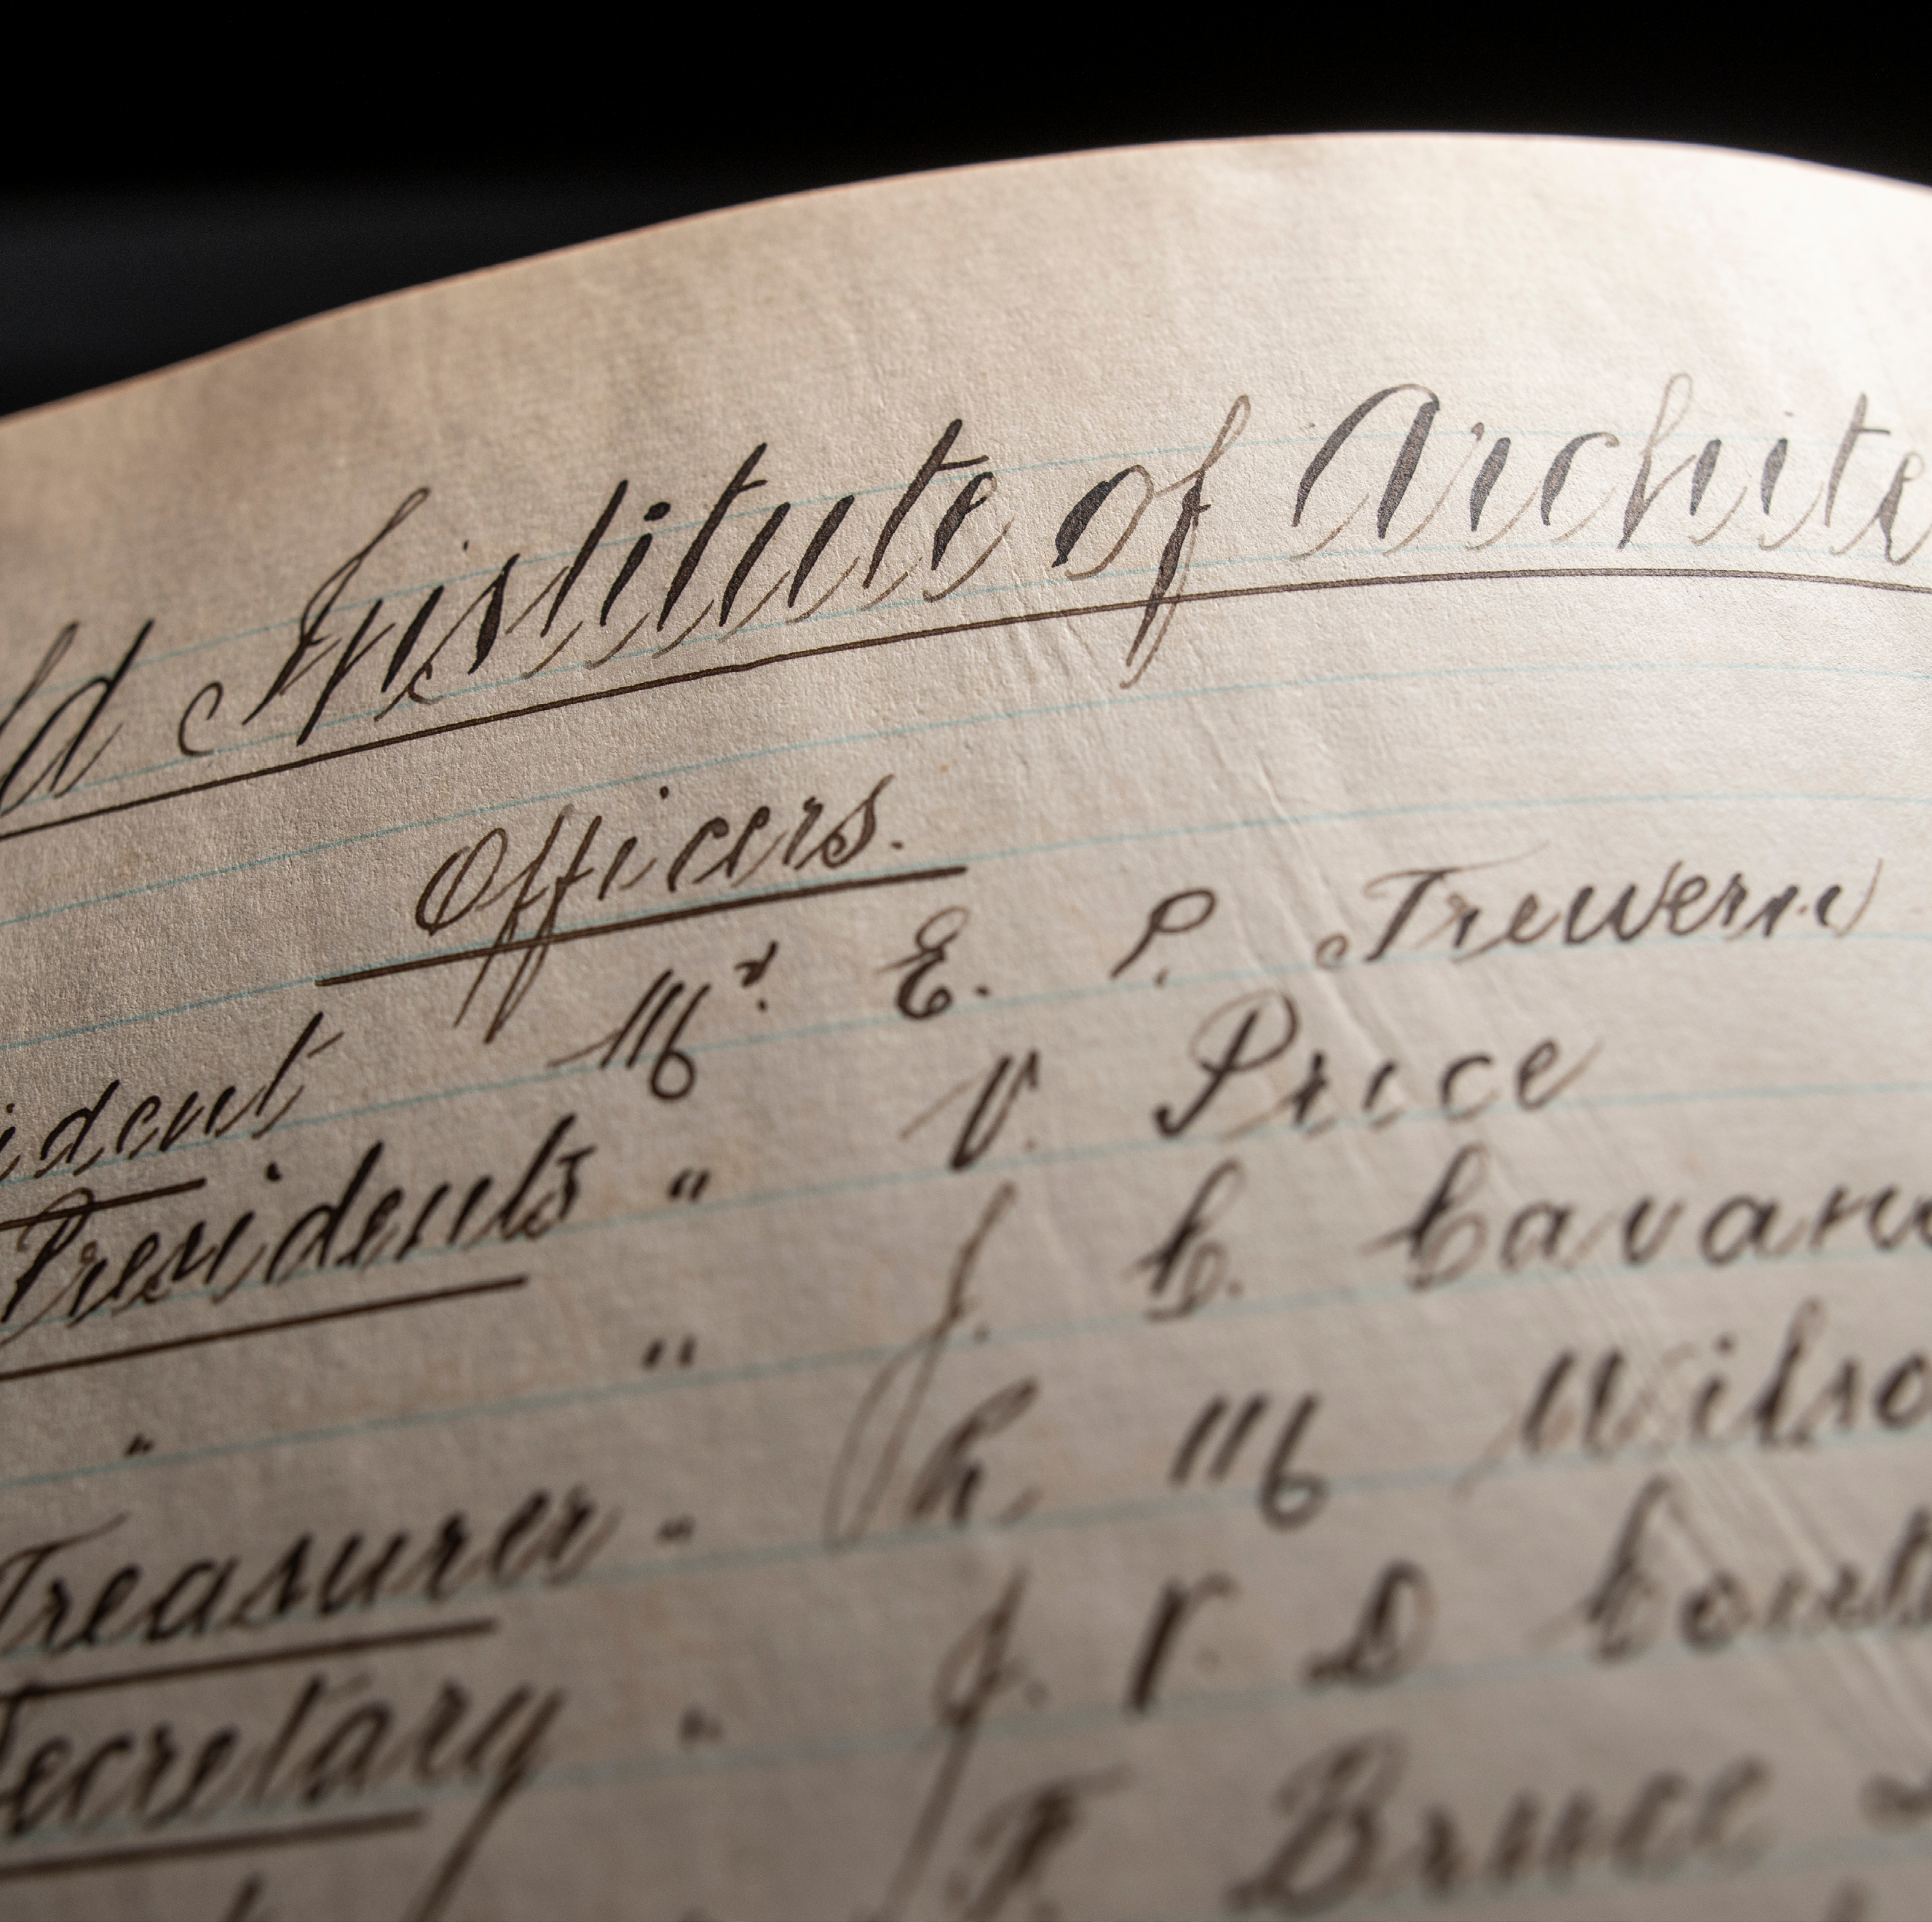 ld Institute of Archite
Officers.
ident Mr. E. P. Trewern
Presidents " V. Price
" " J. C. Cavan
Treasurer " R M Wilso
Secretary " J. V. D Coutt
T. Bruce